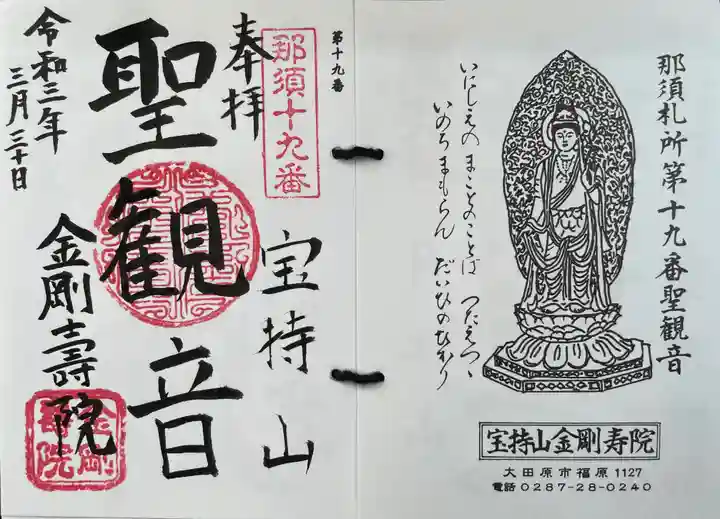 那須札所第十九番聖観音
いにしえの まことのことば つたえつゝ
いのち まもらん だいひのひかり
宝持山金剛寿院
大田原市福原1127
電話0287-28-0240
第十九番
那須十九番
奉拝
宝持山
聖観音
金剛壽院
令和三年
三月三十日
金剛
寿院